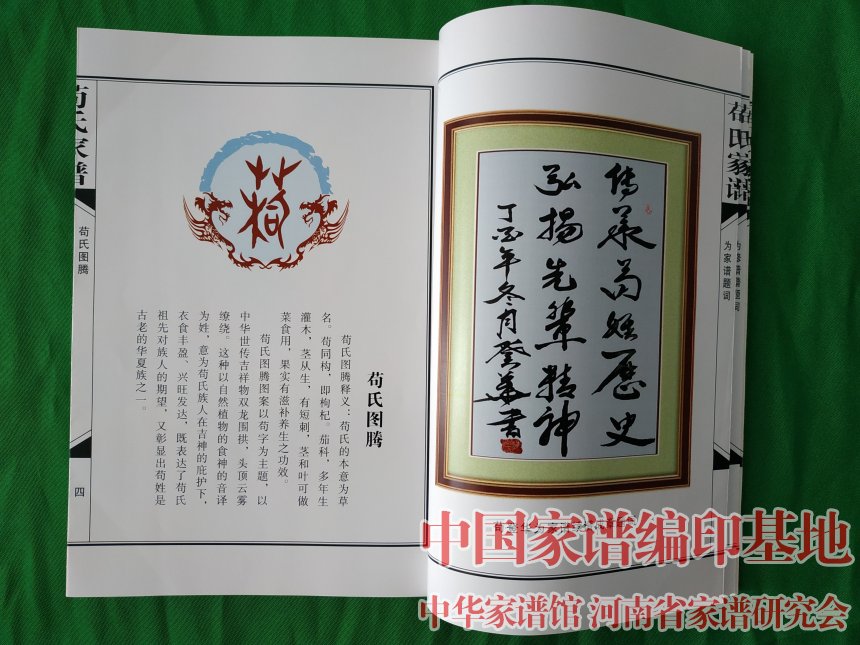 苟氏家谱
苟氏图腾
四
苟氏图腾
苟氏图腾释义：苟氏的本意为草
名。苟同枸，即枸杞。茄科，多年生
灌木，茎丛生，有短刺，茎和叶可做
菜食用，果实有滋补养生之功效。
苟氏图腾图案以苟字为主题，以
中华世传吉祥物双龙围拱，头顶云雾
缭绕。这种以自然植物的食神的音译
为姓，意为苟氏族人在吉神的庇护下，
衣食丰盈、兴旺发达，既表达了苟氏
祖先对族人的期望，又彰显出苟姓是
古老的华夏族之一。
苟氏家谱
为家谱题词
为家谱题词
传承苟姓歷史
弘揚先輩精神
丁酉年冬月登华書
中国家谱编印基地
中华家谱馆 河南省家谱研究会